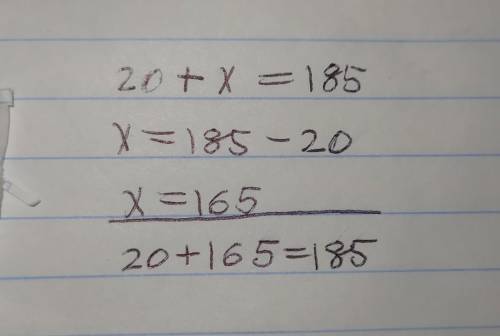 20 + x = 185
x = 185 - 20
x = 165
20 + 165 = 185